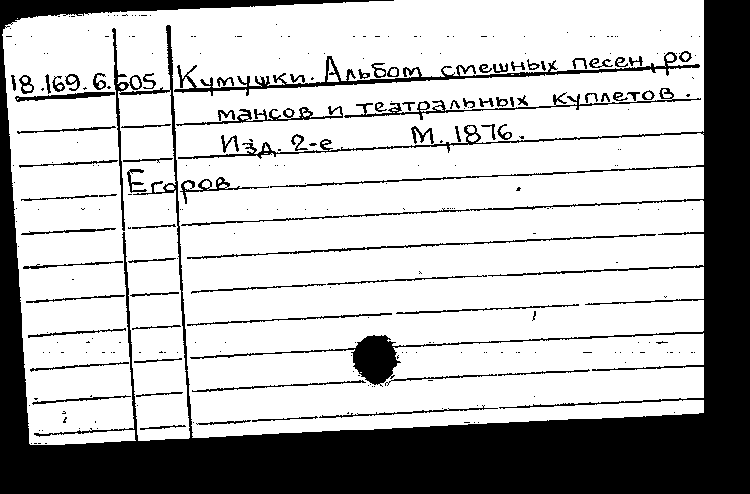 18.169.6.605. Кутушки. Альбом смешных песен, ро
мансов и театральных куплетов.
Изд. 2-е М., 1876.
Егоров